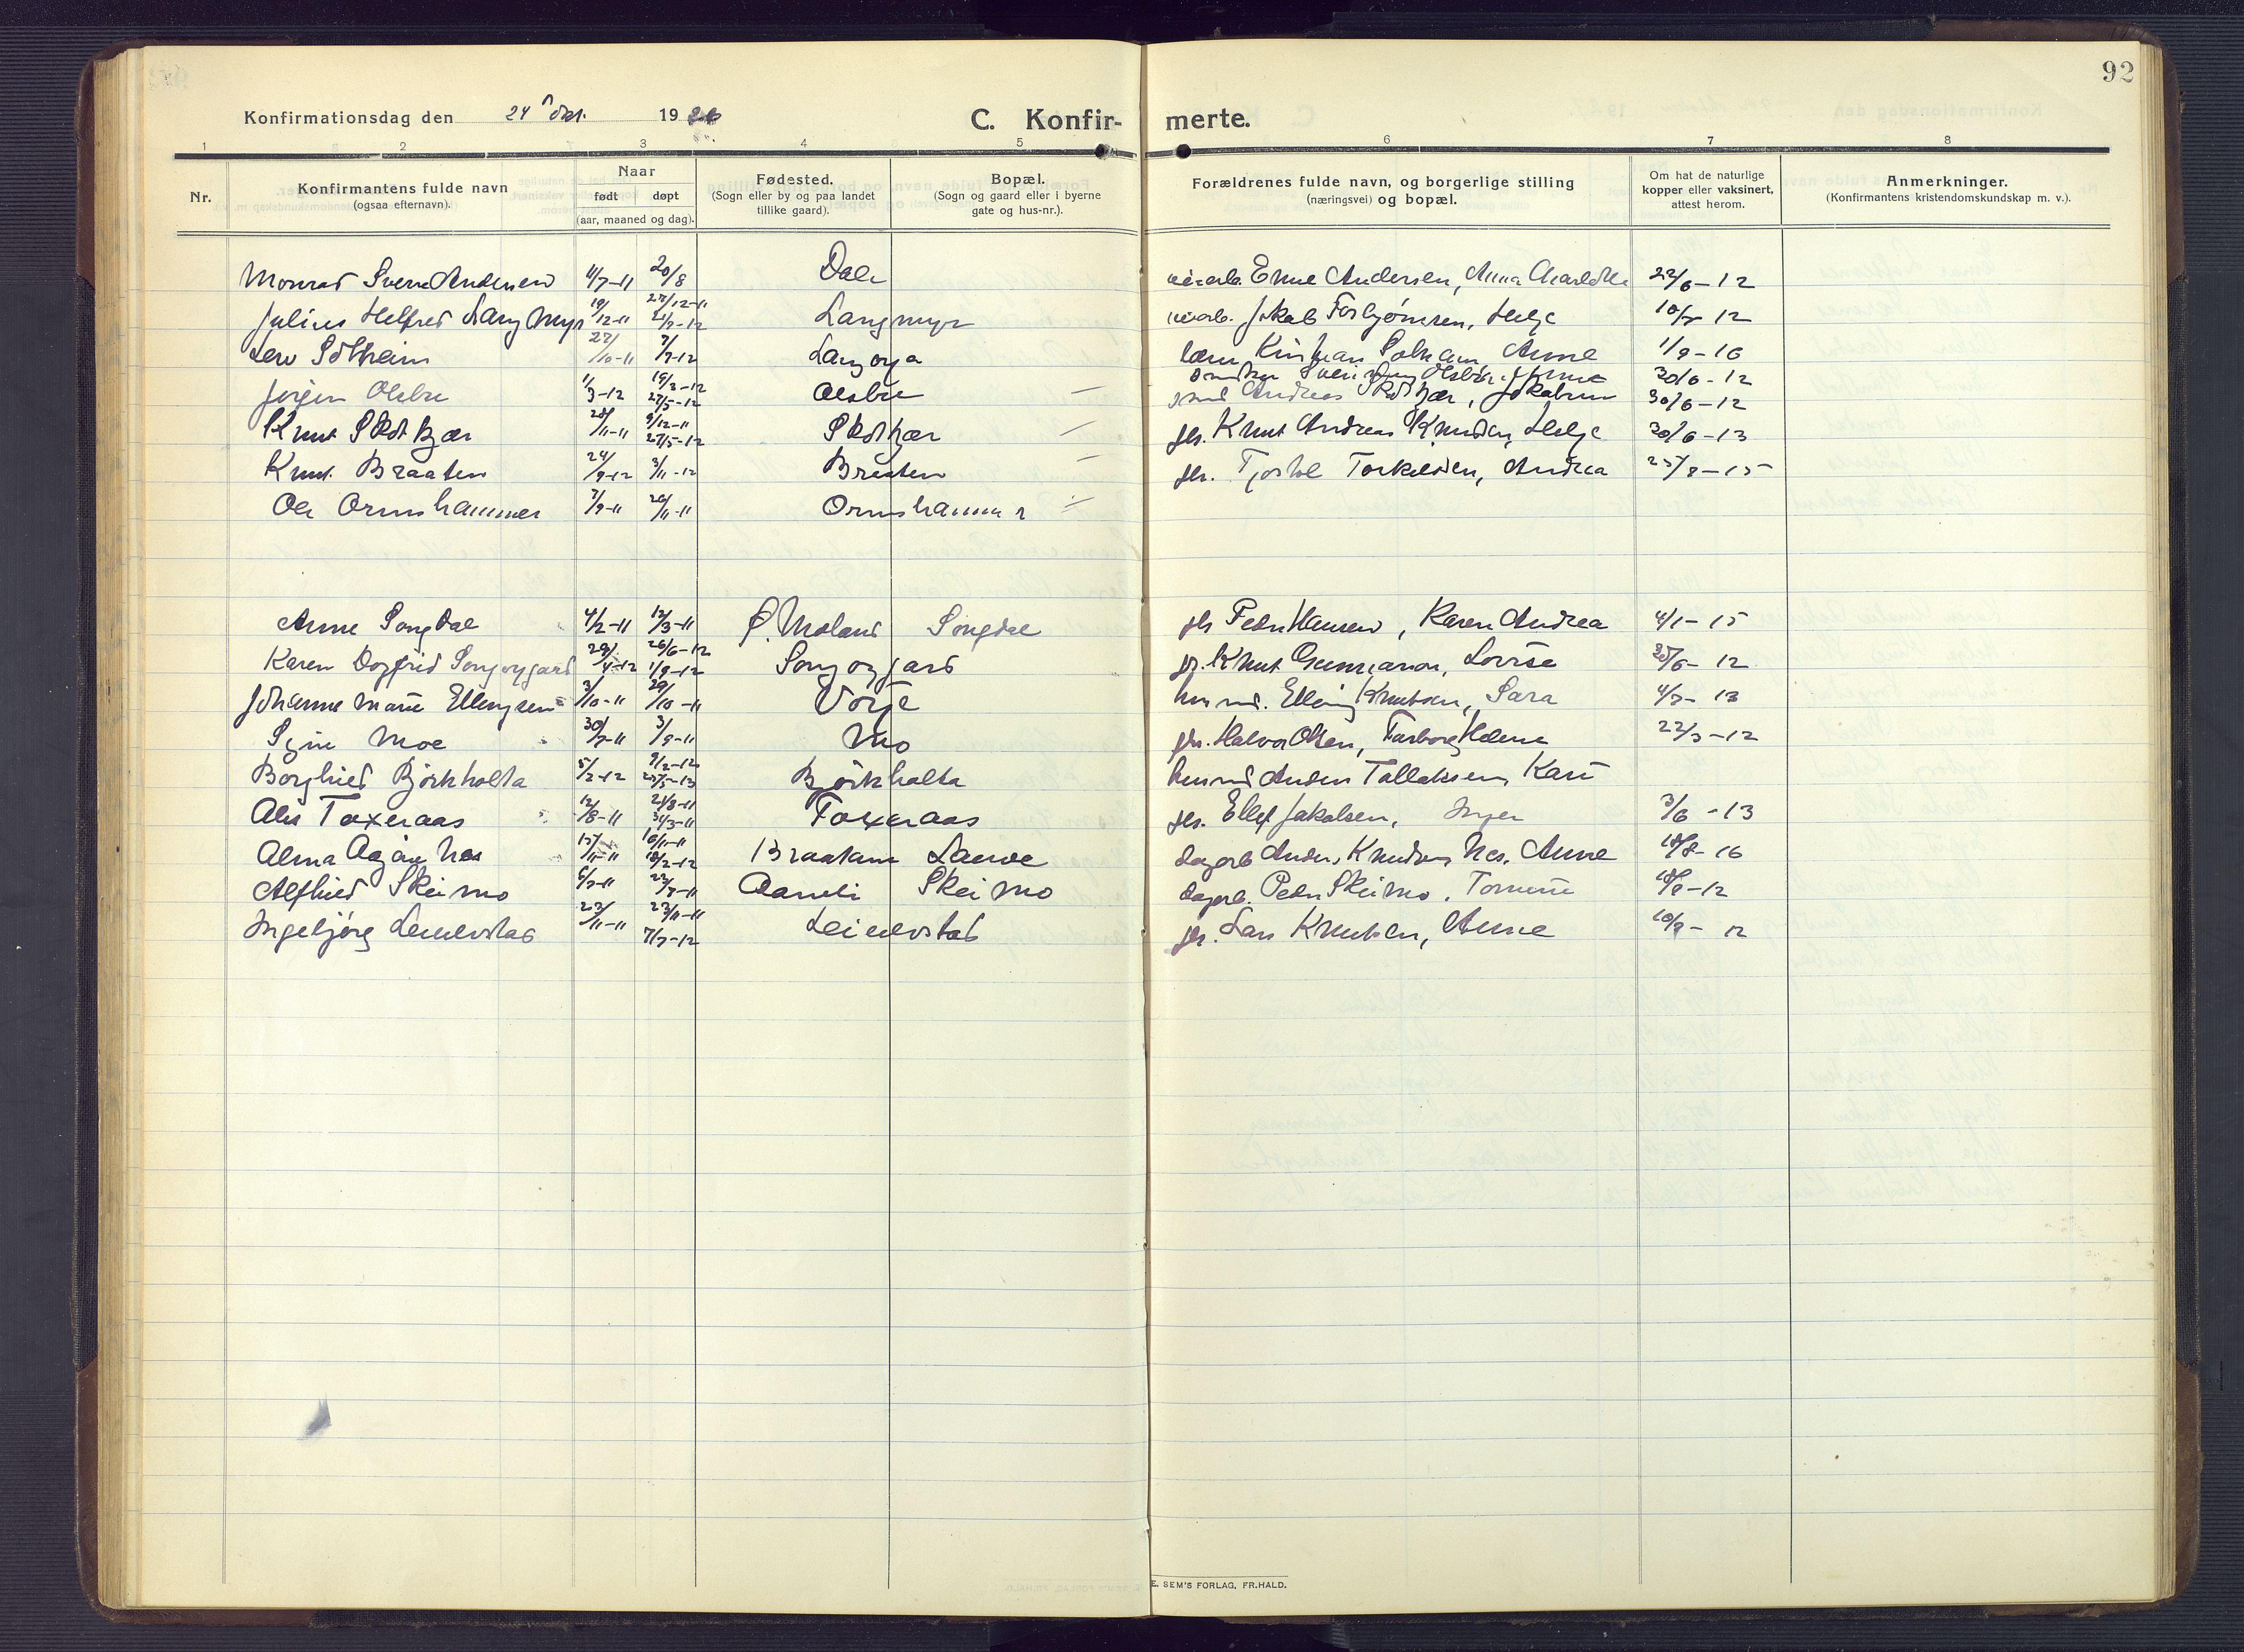 92
Konfirmationsdag den 24 okt. 1926
C. Konfir- merte.
1 2 3 4 5 6 7 8
Nr.
Konfirmantens fulde navn
(ogsaa efternavn).
Naar
født døpt
(aar, maaned og dag).
Fødested.
(Sogn eller by og paa landet
tillike gaard).
Bopæl.
(Sogn og gaard eller i byerne
gate og hus-nr.).
Forældrenes fulde navn, og borgerlige stilling
(næringsvei) og bopæl.
Om hat de naturlige
kopper eller vaksinert,
attest herom.
Anmerkninger.
(Konfirmantens kristendomskundskap m. v.).
Monrad Sverre Andersen 11/7-11 20/8 Dale Andersen, Anna 22/6-12
Julius Helfred Langmyr 19/12-11 Langmyr Jakob Torbjørnsen, Helge 12
Solheim 22/10-11 7/7-12 Langmyr Kristian Solheim, Anne 1/9-16
Jørgen Olsbu 1/3-12 19/3-12 27/5-12 Olsbu — 30/6-12
Knut Skotkjær 20/11-11 9/12-11 27/5-12 Skotkjær — smed Andreas Skotkjær, Jakobine 30/6-12
Knut Braaten 24/9-12 3/11-12 Braaten — gbr. Knut Andreas Knudsen, Helge 30/6-13
Ole Ormshammer 7/9-11 26/11-11 Ormshammer — gbr. Torkelsen, Andrea 25/8-15
Anne Songdal 4/2-11 12/3-11 Ø. Moland Songdal gbr Peder Hansen, Karen Andrea 4/1-15
Karen Dagfrid Songøygard 29/4-12 26/6-12 1/9-12 Songøygard gbr. Knut Gunnarson, Lovise 25/6-12
Johanne Marie Ellingsen 3/10-11 29/10-11 Vorje husmd. Elling Knutsen, Sara 4/7-13
Signe Moe 30/7-11 3/9-11 Mo gbr. Halvor Olsen, Torborg Helene 22/3-12
Borghild Bjørkholta 5/2-12 9/2-12 25/5-13 Bjørkholta husmd Anders Tallaksen, Kari
Toxeraas 12/8-11 21/8-11 Toxeraas gbr. Ellef Jakobsen, Inger 3/6-13
Alma Nes 15/11-11 16/11-11 18/2-12 Braatane dagarb Anders Knudsen Nes, Anne 18/8-16
Alfhild Skeimo 6/7-11 23/7-11 Aamli Skeimo dagarb. Peder Skeimo, Tomine 18/8-12
Ingebjørg 23/11-11 23/11-11 7/7-12 gbr. Lars Knutsen, Anne 12
E. SEM'S FORLAG, FR.HALD.